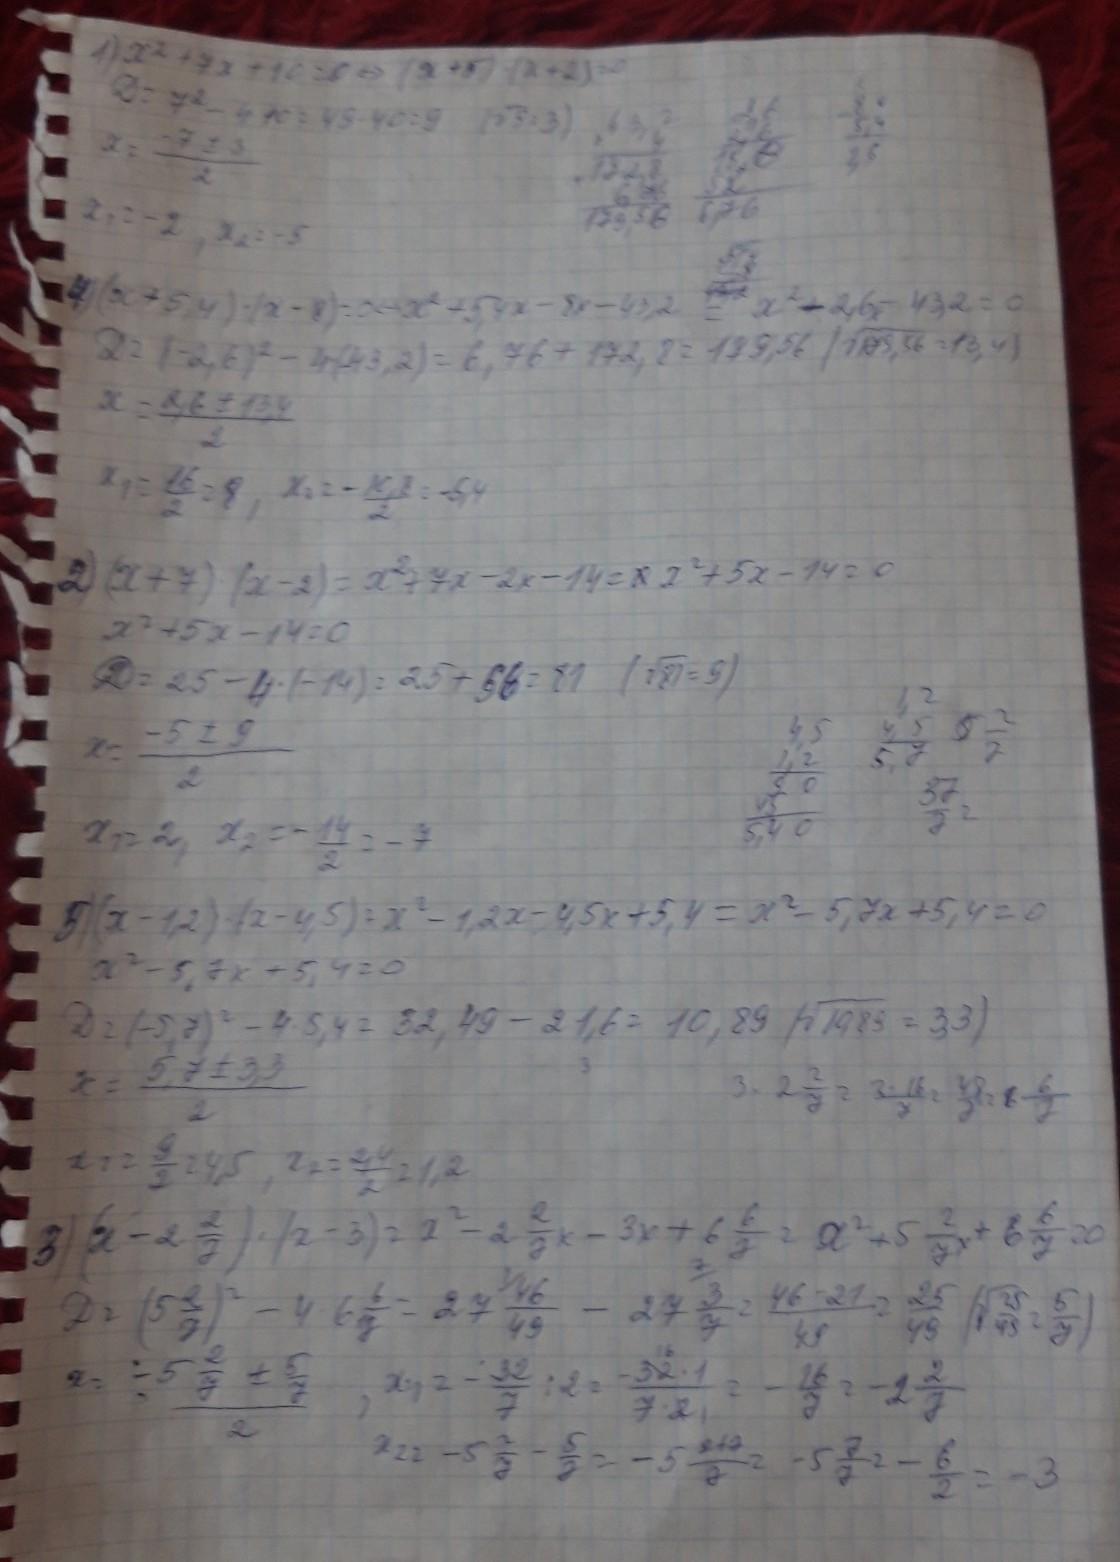 1) x² + 7x + 10 = 0 ⇔ (x+5)·(x+2)=0
D = 7² - 4·10 = 49-40=9 (√9=3)
x = (-7 ± 3)/2
x₁ = -2, x₂ = -5
4) (x+5,4)·(x-8)=x²+5,4x-8x-43,2 = x²-2,6x-43,2=0
D = (-2,6)² - 4(43,2) = 6,76 + 172,8 = 179,56 (√179,56 = 13,4)
x = (2,6 ± 13,4)/2
x₁ = 16/2 = 8, x₂ = -10,8/2 = -5,4
2) (x+7)·(x-2) = x²+7x-2x-14= x²+5x-14=0
x²+5x-14=0
D = 25-4·(-14) = 25+56=81 (√81=9)
x = (-5 ± 9)/2
4,5
1,2
90
45
5,40
1,2
4,5
5,7
5 2/7
37/7 =
x₁ = 2, x₂ = -14/2 = -7
5) (x-1,2)·(x-4,5)=x²-1,2x-4,5x+5,4=x²-5,7x+5,4=0
x²-5,7x+5,4=0
D = (-5,7)² - 4·5,4 = 32,49-21,6= 10,89 (√10,89 = 3,3)
x = (5,7 ± 3,3)/2
3· 2 2/7 = 3·16/7 = 48/7 = 6 6/7
x₁ = 9/2 = 4,5, x₂ = 2,4/2 = 1,2
3) (x - 2 2/7)·(x-3) = x² - 2 2/7 x - 3x + 6 6/7 = x² + 5 2/7 x + 6 6/7 = 0
D = (5 2/7)² - 4 6 6/7 = 27 46/49 - 27 3/7 = (46-21)/49 = 25/49 (√25/49 = 5/7)
x = (-5 2/7 ± 5/7)/2, x₁ = -32/7 : 2 = (-32·1)/(7·2) = -16/7 = -2 2/7
x₂ = -5 2/7 - 5/7 = -5 7/7 = -6/2 = -3